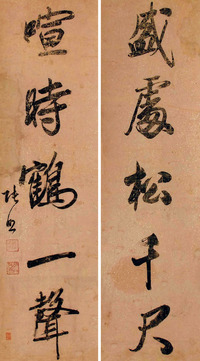 盛處松千尺
喧時鶴一聲